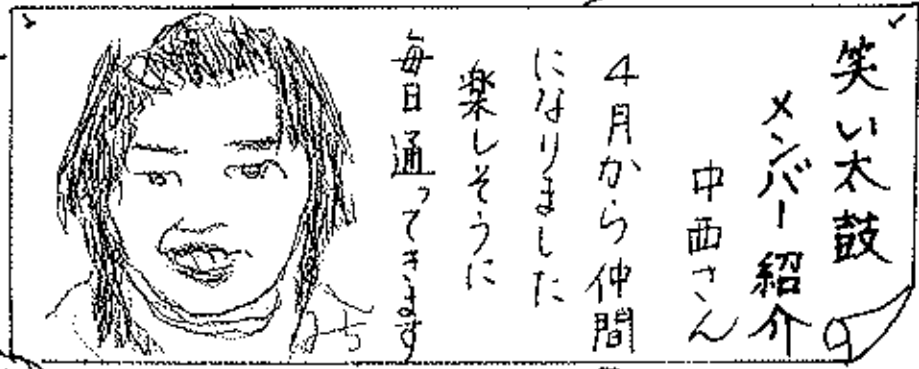 笑い太鼓
メンバー紹介
中西さん
4月から仲間
になりました
楽しそうに
毎日通ってきます